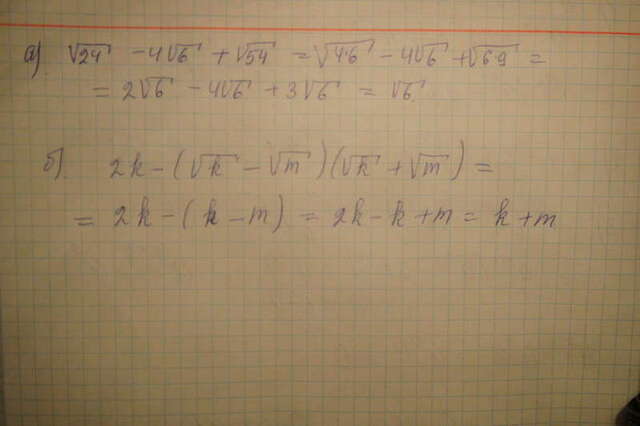 а) √24 - 4√6 + √54 = √4·6 - 4√6 + √6·9 =
= 2√6 - 4√6 + 3√6 = √6
б) 2k - (√k - √m)(√k + √m) =
= 2k - (k - m) = 2k - k + m = k + m